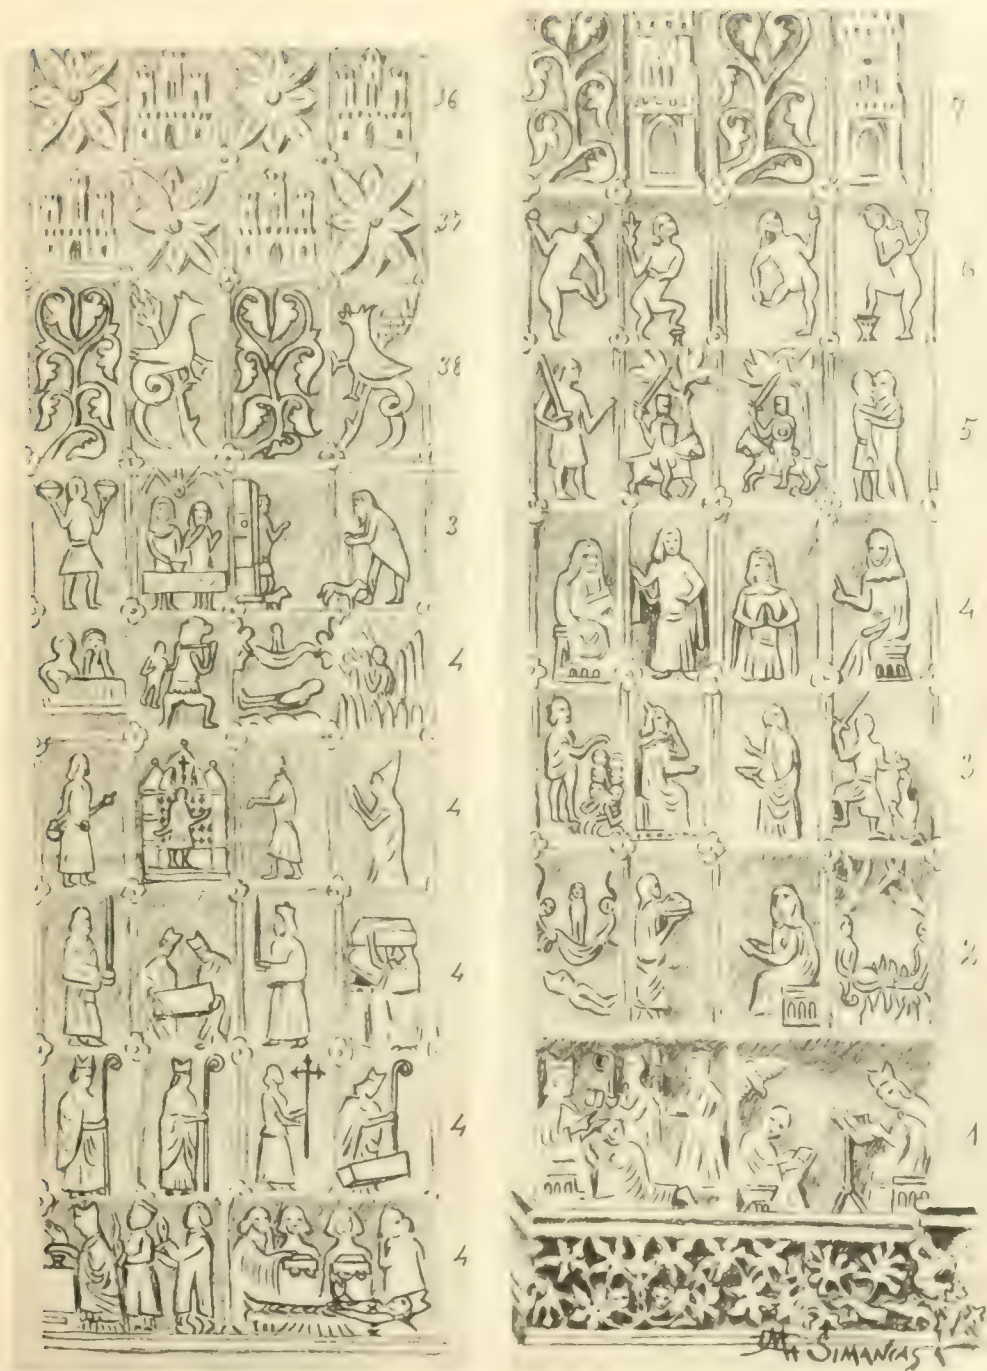 36
37
38
3
4
4
4
4
4
7
6
5
4
3
2
1
SIMANCAS